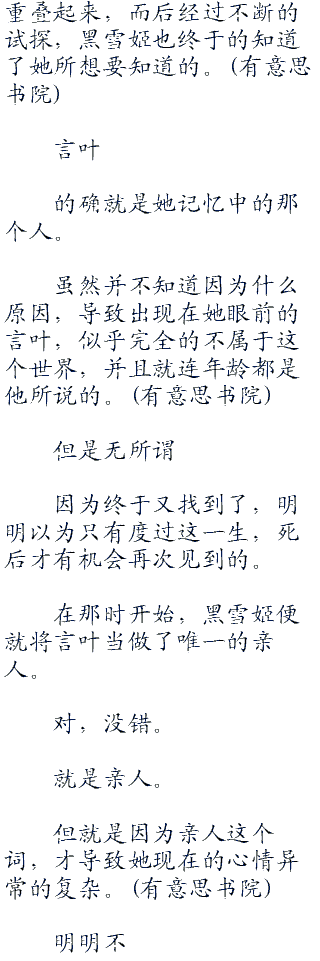 重叠起来，而后经过不断的
试探，黑雪姬也终于的知道
了她所想要知道的。(有意思
书院)
言叶
的确就是她记忆中的那
个人。
虽然并不知道因为什么
原因，导致出现在她眼前的
言叶，似乎完全的不属于这
个世界，并且就连年龄都是
他所说的。(有意思书院)
但是无所谓
因为终于又找到了，明
明以为只有度过这一生，死
后才有机会再次见到的。
在那时开始，黑雪姬便
就将言叶当做了唯一的亲
人。
对，没错。
就是亲人。
但就是因为亲人这个
词，才导致她现在的心情异
常的复杂。(有意思书院)
明明不